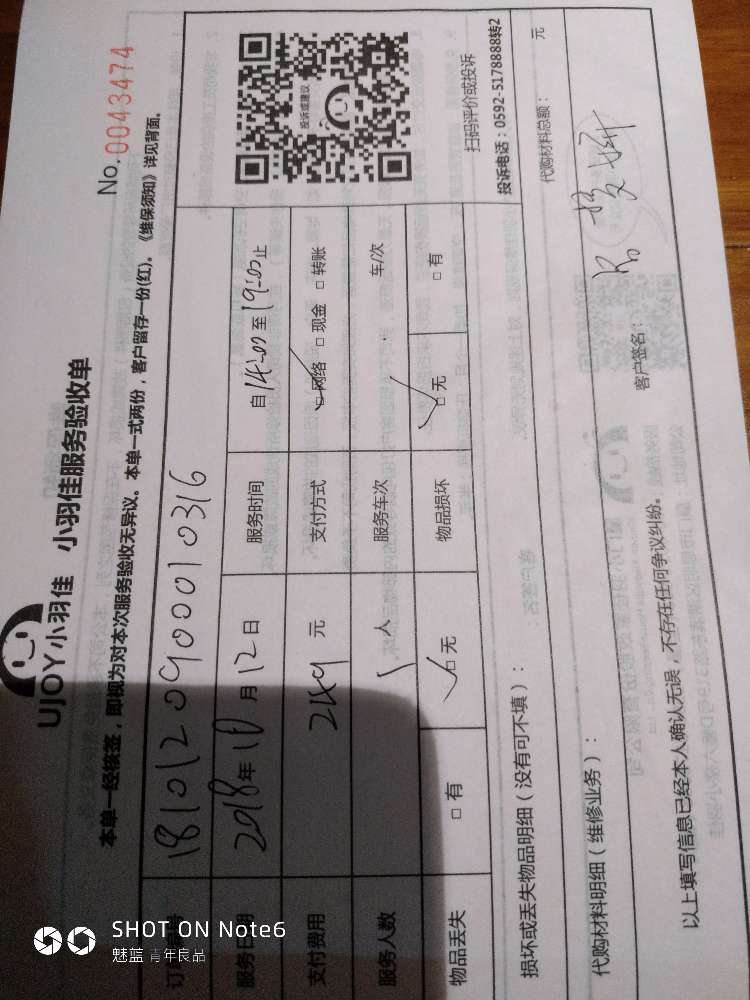 UJOY小羽佳 小羽佳服务验收单
No. 0043474
本单一经核签，即视为对本次服务验收无异议。本单一式两份，客户留存一份(红)。《维保须知》详见背面。
18101209000010316
服务日期 2018年10月12日 服务时间 自14:00至19:00止
支付费用 249元 支付方式 ☑网络 □现金 □转账
服务人数 1人 服务车次 车/次
物品丢失 □有 ☑无 物品损坏 ☑无 □有
投诉或建议
扫码评价或投诉
投诉电话：0592-5178888转2
损坏或丢失物品明细（没有可不填）：
代购材料明细（维修业务）： 代购材料总额： 元
以上填写信息已经本人确认无误，不存在任何争议纠纷。 客户签名：
SHOT ON Note6
魅蓝 青年良品